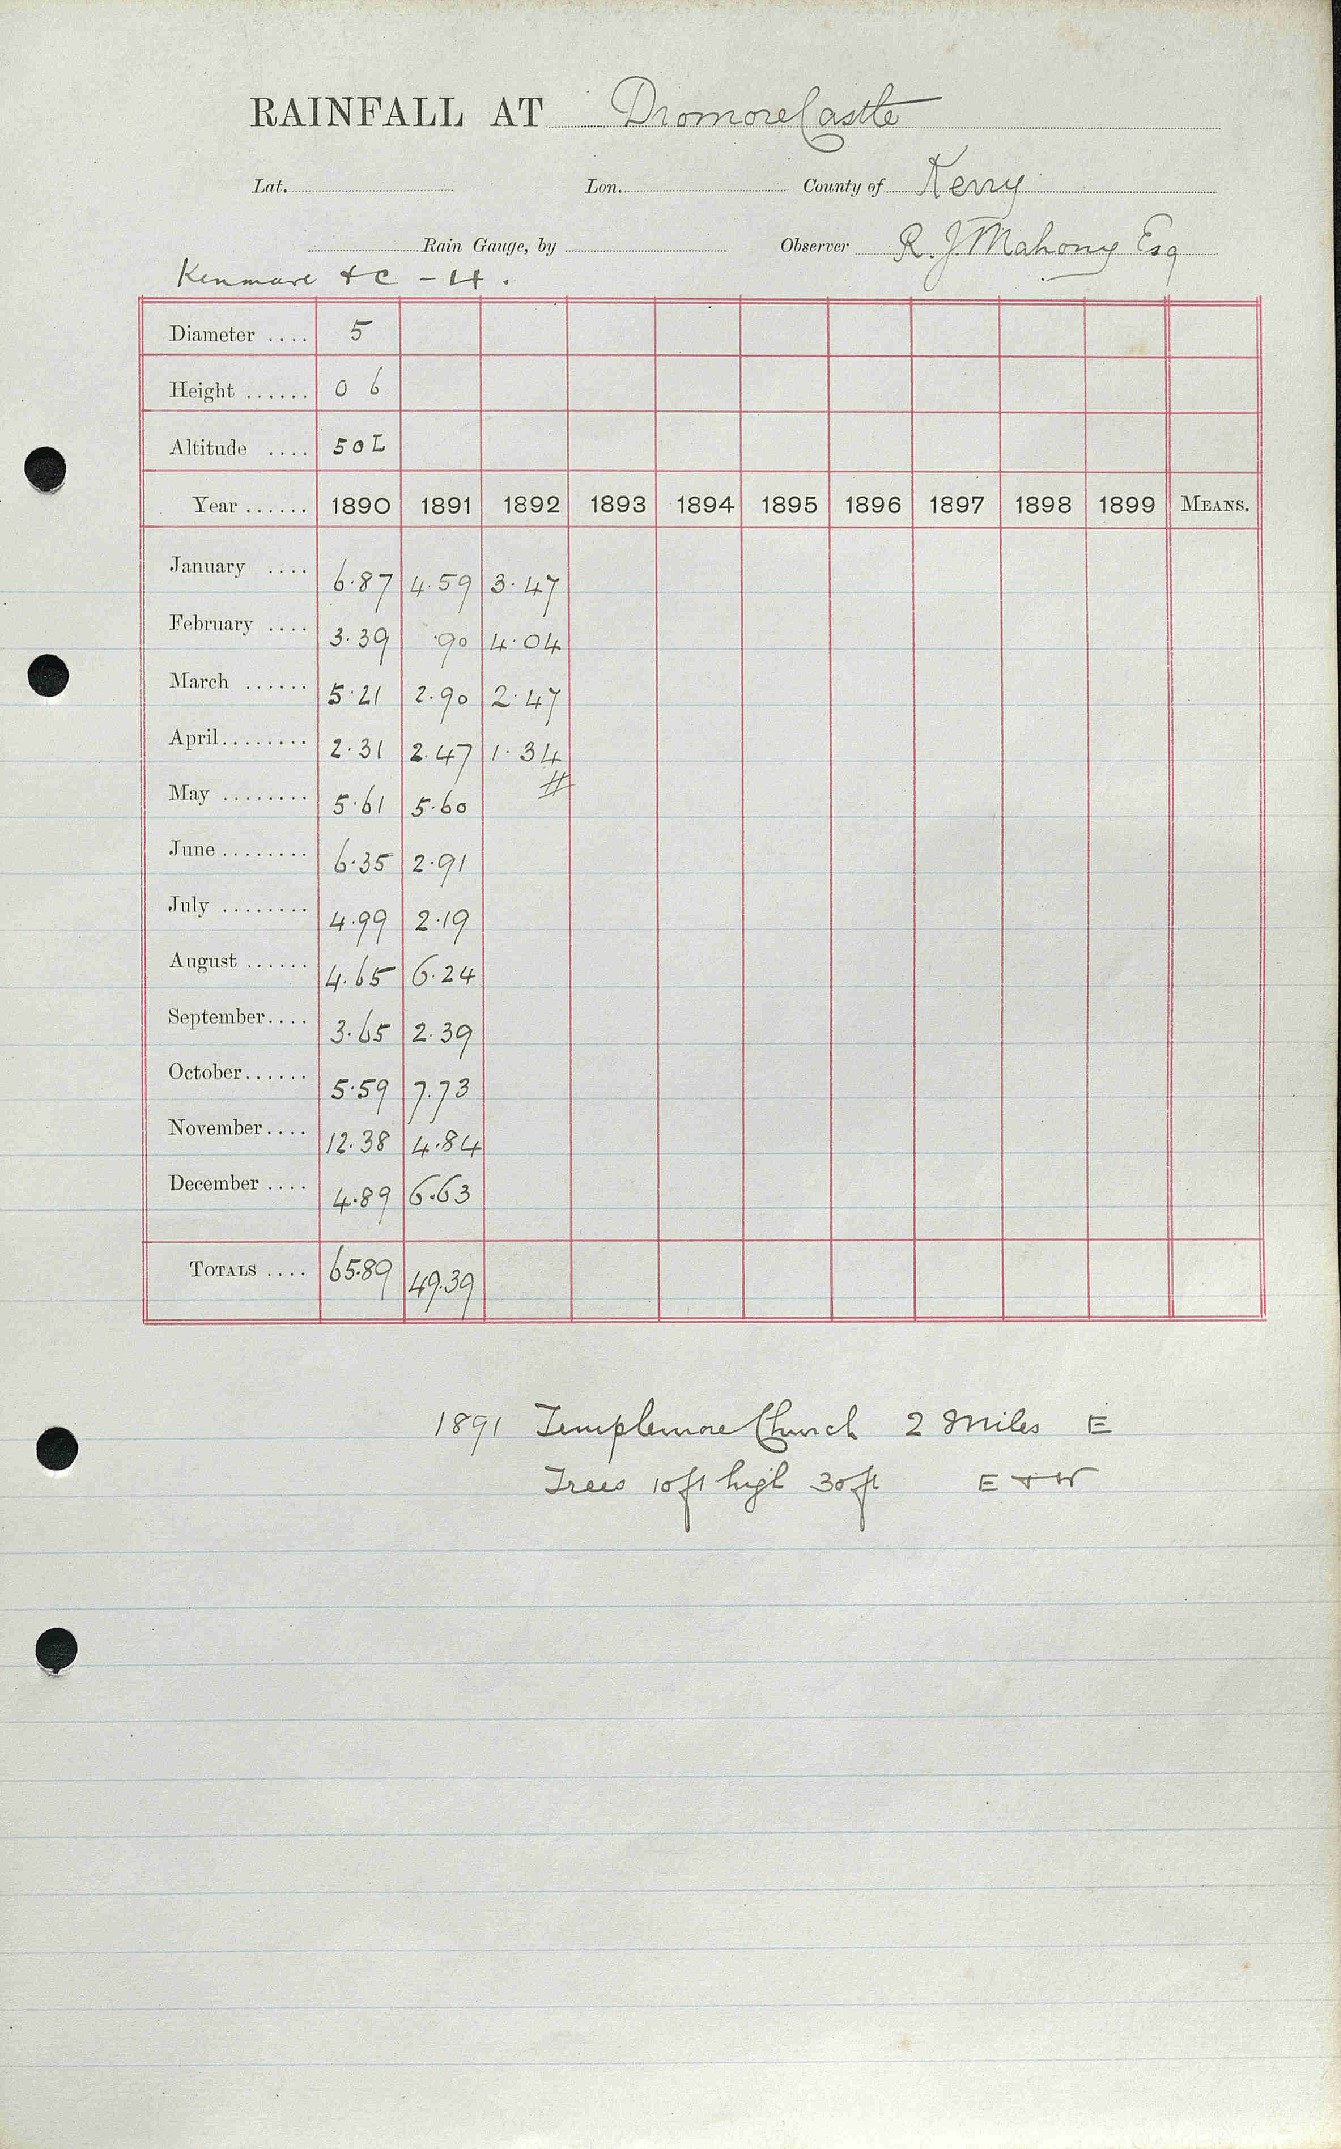 RAINFALL AT Dromore Castle
Lat. Lon. County of Kerry
Rain Gauge, by Observer R. J. Mahony Esq
Kenmare
Diameter .... 5
Height ...... 0 6
Altitude .... 50
Year ...... 1890 1891 1892 1893 1894 1895 1896 1897 1898 1899 MEANS.
January .... 6.87 4.59 3.47
February .... 3.39 .90 4.04
March ...... 5.21 2.90 2.47
April........ 2.31 2.47 1.34
May ........ 5.61 5.60
June........ 6.35 2.91
July ........ 4.99 2.19
August ...... 4.65 6.24
September.... 3.65 2.39
October...... 5.59 7.73
November.... 12.38 4.84
December .... 4.89 6.63
TOTALS .... 65.89 49.39
1891 Templemore Church 2 Miles E
Trees 10ft high 30ft E + W